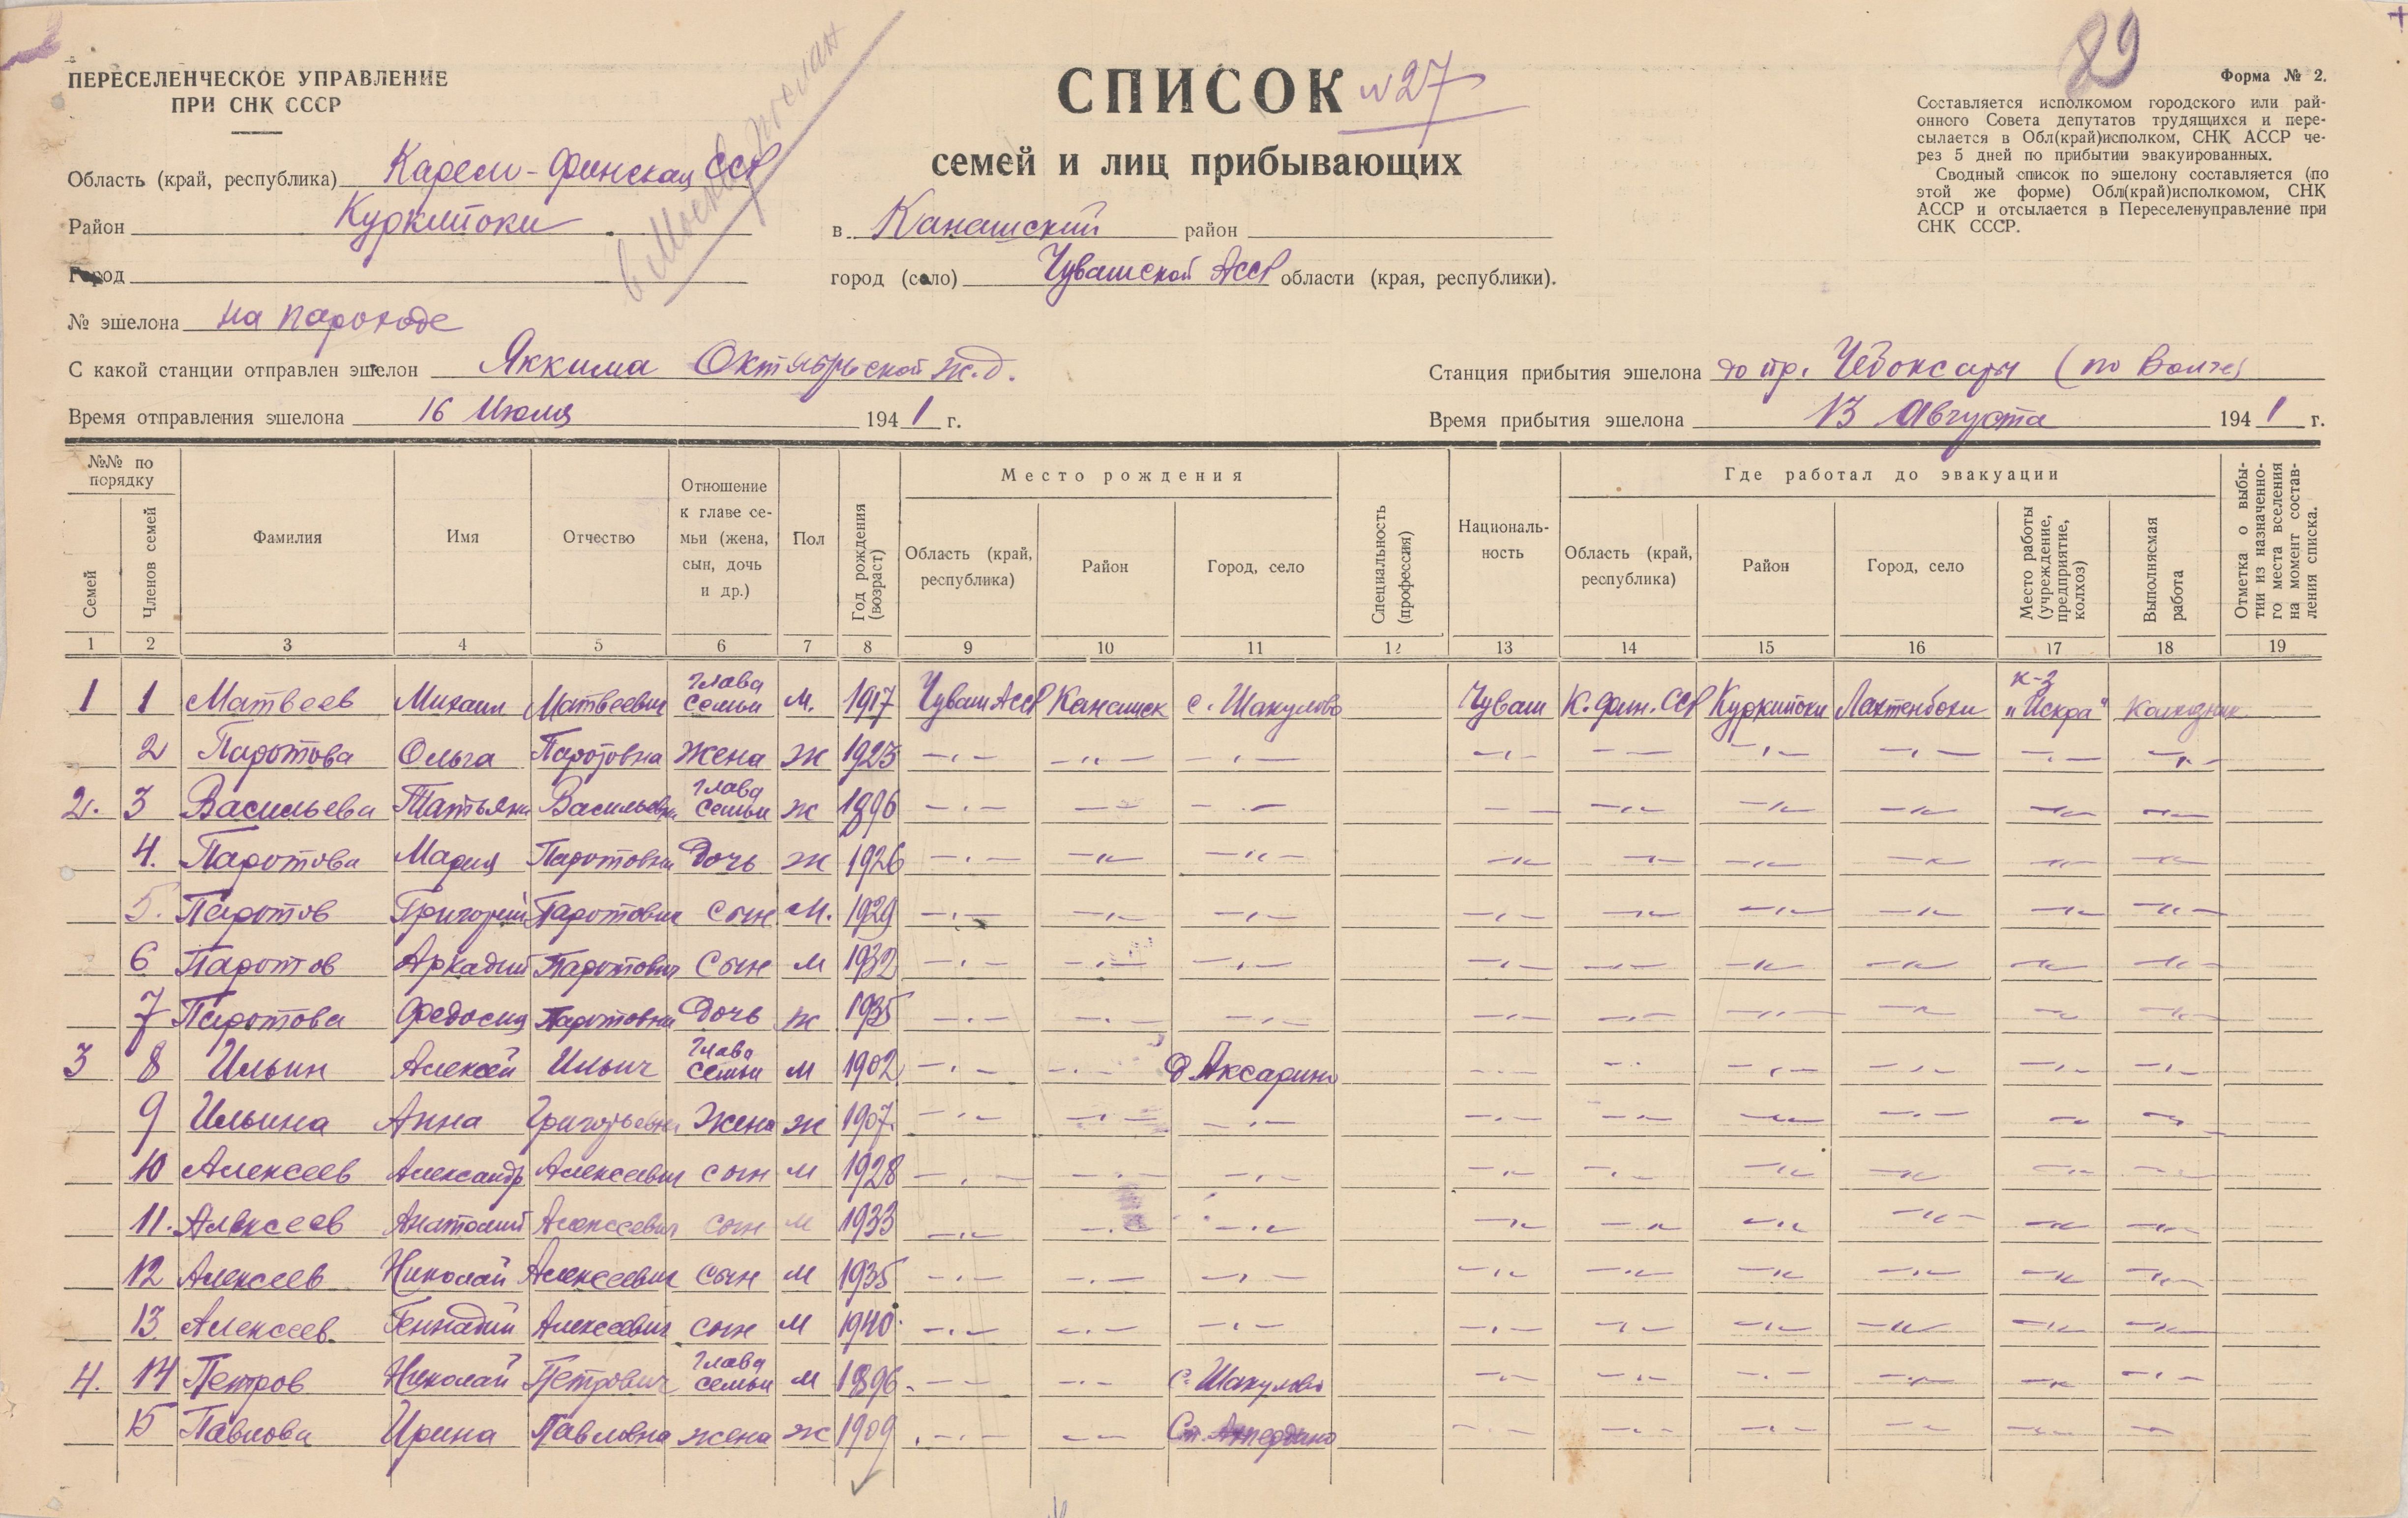 89
ПЕРЕСЕЛЕНЧЕСКОЕ УПРАВЛЕНИЕ
ПРИ СНК СССР
в Москву послан
СПИСОК №27
семей и лиц прибывающих
Форма № 2.
Составляется исполкомом городского или рай-
онного Совета депутатов трудящихся и пере-
сылается в Обл(край)исполком, СНК АССР че-
рез 5 дней по прибытии эвакуированных.
Сводный список по эшелону составляется (по
этой же форме) Обл(край)исполкомом, СНК
АССР и отсылается в Переселенуправление при
СНК СССР.
Область (край, республика) Карело-Финская ССР
Район Куркийоки
в Канашский район
Город
город (село) Чувашской АССР области (края, республики).
№ эшелона на пароходе
С какой станции отправлен эшелон Яккима Октябрьской ж.д.
Станция прибытия эшелона до пр. Чебоксары (по Волге)
Время отправления эшелона 16 Июля 1941 г.
Время прибытия эшелона 13 Августа 1941 г.
№№ по порядку
Семей
Членов семей
Фамилия
Имя
Отчество
Отношение к главе се-мьи (жена, сын, дочь и др.)
Пол
Год рождения (возраст)
Место рождения
Область (край, республика)
Район
Город, село
Специальность (профессия)
Националь-ность
Где работал до эвакуации
Область (край, республика)
Район
Город, село
Место работы (учреждение, предприятие, колхоз)
Выполняемая работа
Отметка о выбы-тии из назначенно-го места вселения на момент состав-ления списка.
1 2 3 4 5 6 7 8 9 10 11 12 13 14 15 16 17 18 19
1 1 Матвеев Михаил Матвеевич Глава семьи м. 1917 Чуваш АССР Канашск с. Шакулово Чуваш К. фин. ССР Куркийоки Лахтенбоки к-з "Искра" колхозник
2 Паротова Ольга Паротовна жена ж 1923 -"- -"- -"- -"- -"- -"- -"- -"- -"-
2. 3 Васильева Татьяна Васильевна Глава семьи ж 1896 -"- -"- -"- -"- -"- -"- -"- -"- -"-
4. Паротова Мария Паротовна Дочь ж 1926 -"- -"- -"- -"- -"- -"- -"- -"- -"-
5. Паротов Григорий Паротович сын м. 1929 -"- -"- -"- -"- -"- -"- -"- -"- -"-
6 Паротов Аркадий Паротович Сын м 1932 -"- -"- -"- -"- -"- -"- -"- -"- -"-
7 Паротова Федосия Паротовна Дочь ж 1935 -"- -"- -"- -"- -"- -"- -"- -"- -"-
3 8 Ильин Алексей Ильич Глава семьи м 1902 -"- -"- д Аксарино -"- -"- -"- -"- -"- -"-
9 Ильина Анна Григорьевна Жена ж 1907. -"- -"- -"- -"- -"- -"- -"- -"- -"-
10 Алексеев Александр Алексеевич сын м 1928 -"- -"- -"- -"- -"- -"- -"- -"- -"-
11. Алексеев Анатолий Алексеевич сын м 1933 -"- -"- -"- -"- -"- -"- -"- -"- -"-
12 Алексеев Николай Алексеевич сын м 1935 -"- -"- -"- -"- -"- -"- -"- -"- -"-
13 Алексеев. Геннадий Алексеевич сын м 1940 -"- -"- -"- -"- -"- -"- -"- -"- -"-
4. 14 Петров Николай Петрович Глава семьи м 1896 -"- -"- с. Шакулово -"- -"- -"- -"- -"- -"-
15 Павлова Ирина Павловна жена ж 1909 -"- -"- Ст. -"- -"- -"- -"- -"- -"-